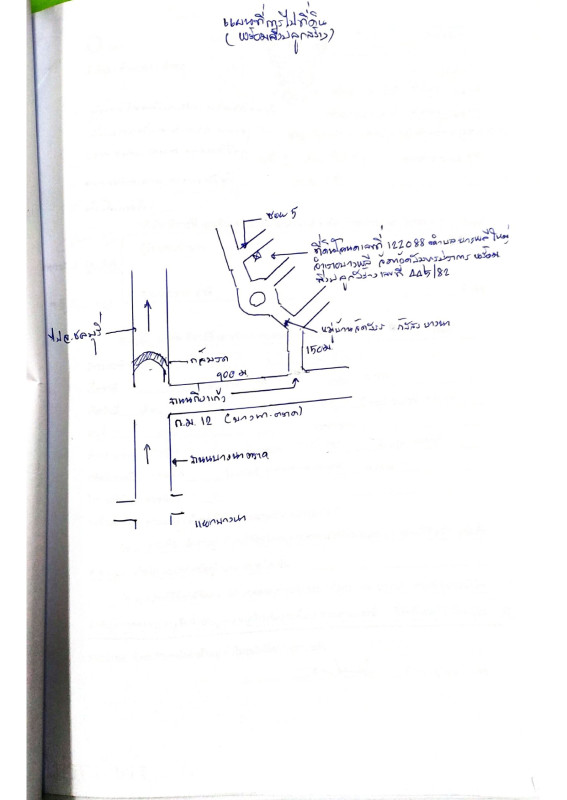 แผนที่การไปที่ดิน
(พร้อมสิ่งปลูกสร้าง)
ซอย 5
ที่ดินโฉนดเลขที่ 122088 ตำบลบางพลีใหญ่
อำเภอบางพลี จังหวัดสมุทรปราการ พร้อม
สิ่งปลูกสร้างเลขที่ 445/82
ไป จ.ชลบุรี
หมู่บ้าน บางนา
150 ม.
กลับรถ
900 ม
ถนนกิ่งแก้ว
ก.ม. 12 (บางนา-ตราด)
ถนนบางนาตราด
แยกบางนา